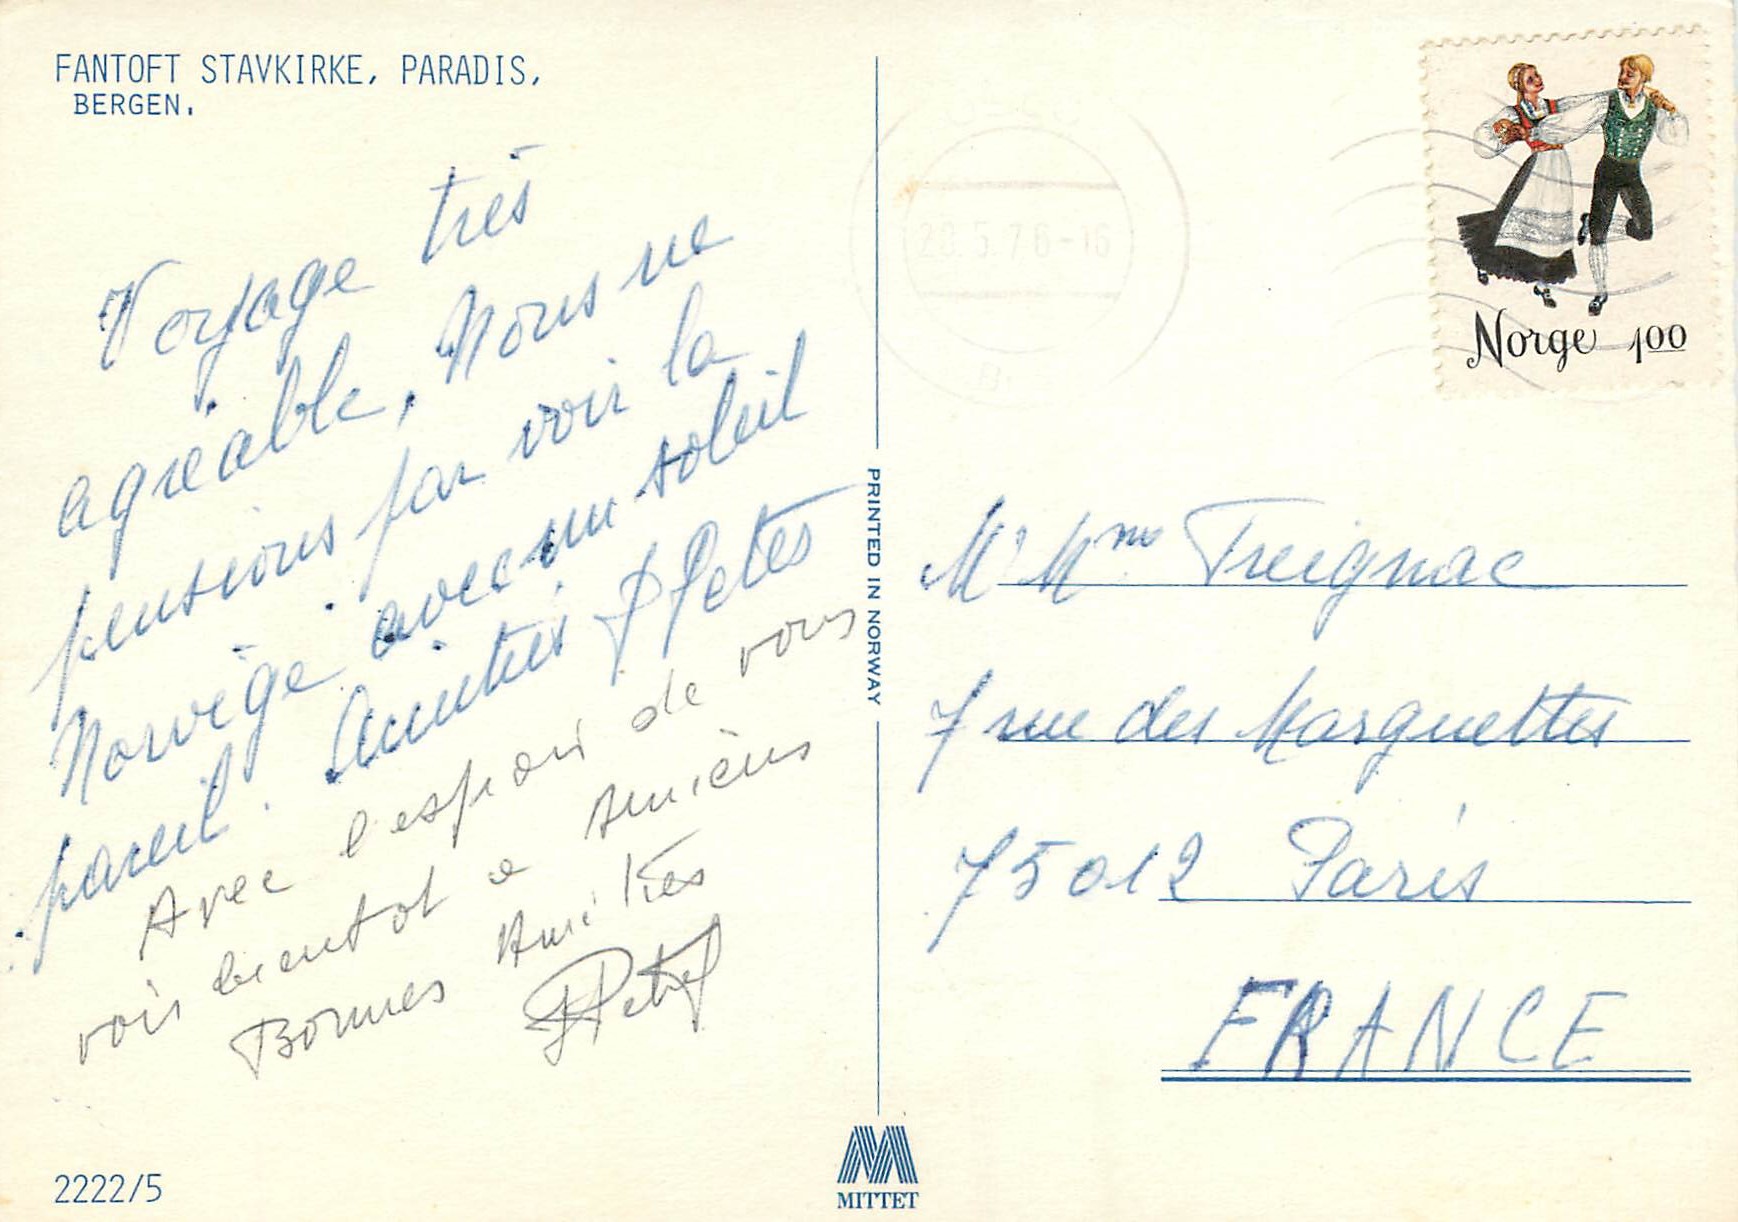 FANTOFT STAVKIRKE, PARADIS,
BERGEN.
Voyage très
agréable, Nous ne
pensions pas voir la
Norvège avec un soleil
pareil. Amitiés
Avec l'espoir de vous
voir bientot a Amiens
Bonnes Amitiés
28.5.76-16
Norge 100
PRINTED IN NORWAY
Mr Mme Treignac
7 rue des Marguettes
75012 Paris
FRANCE
2222/5
MITTET